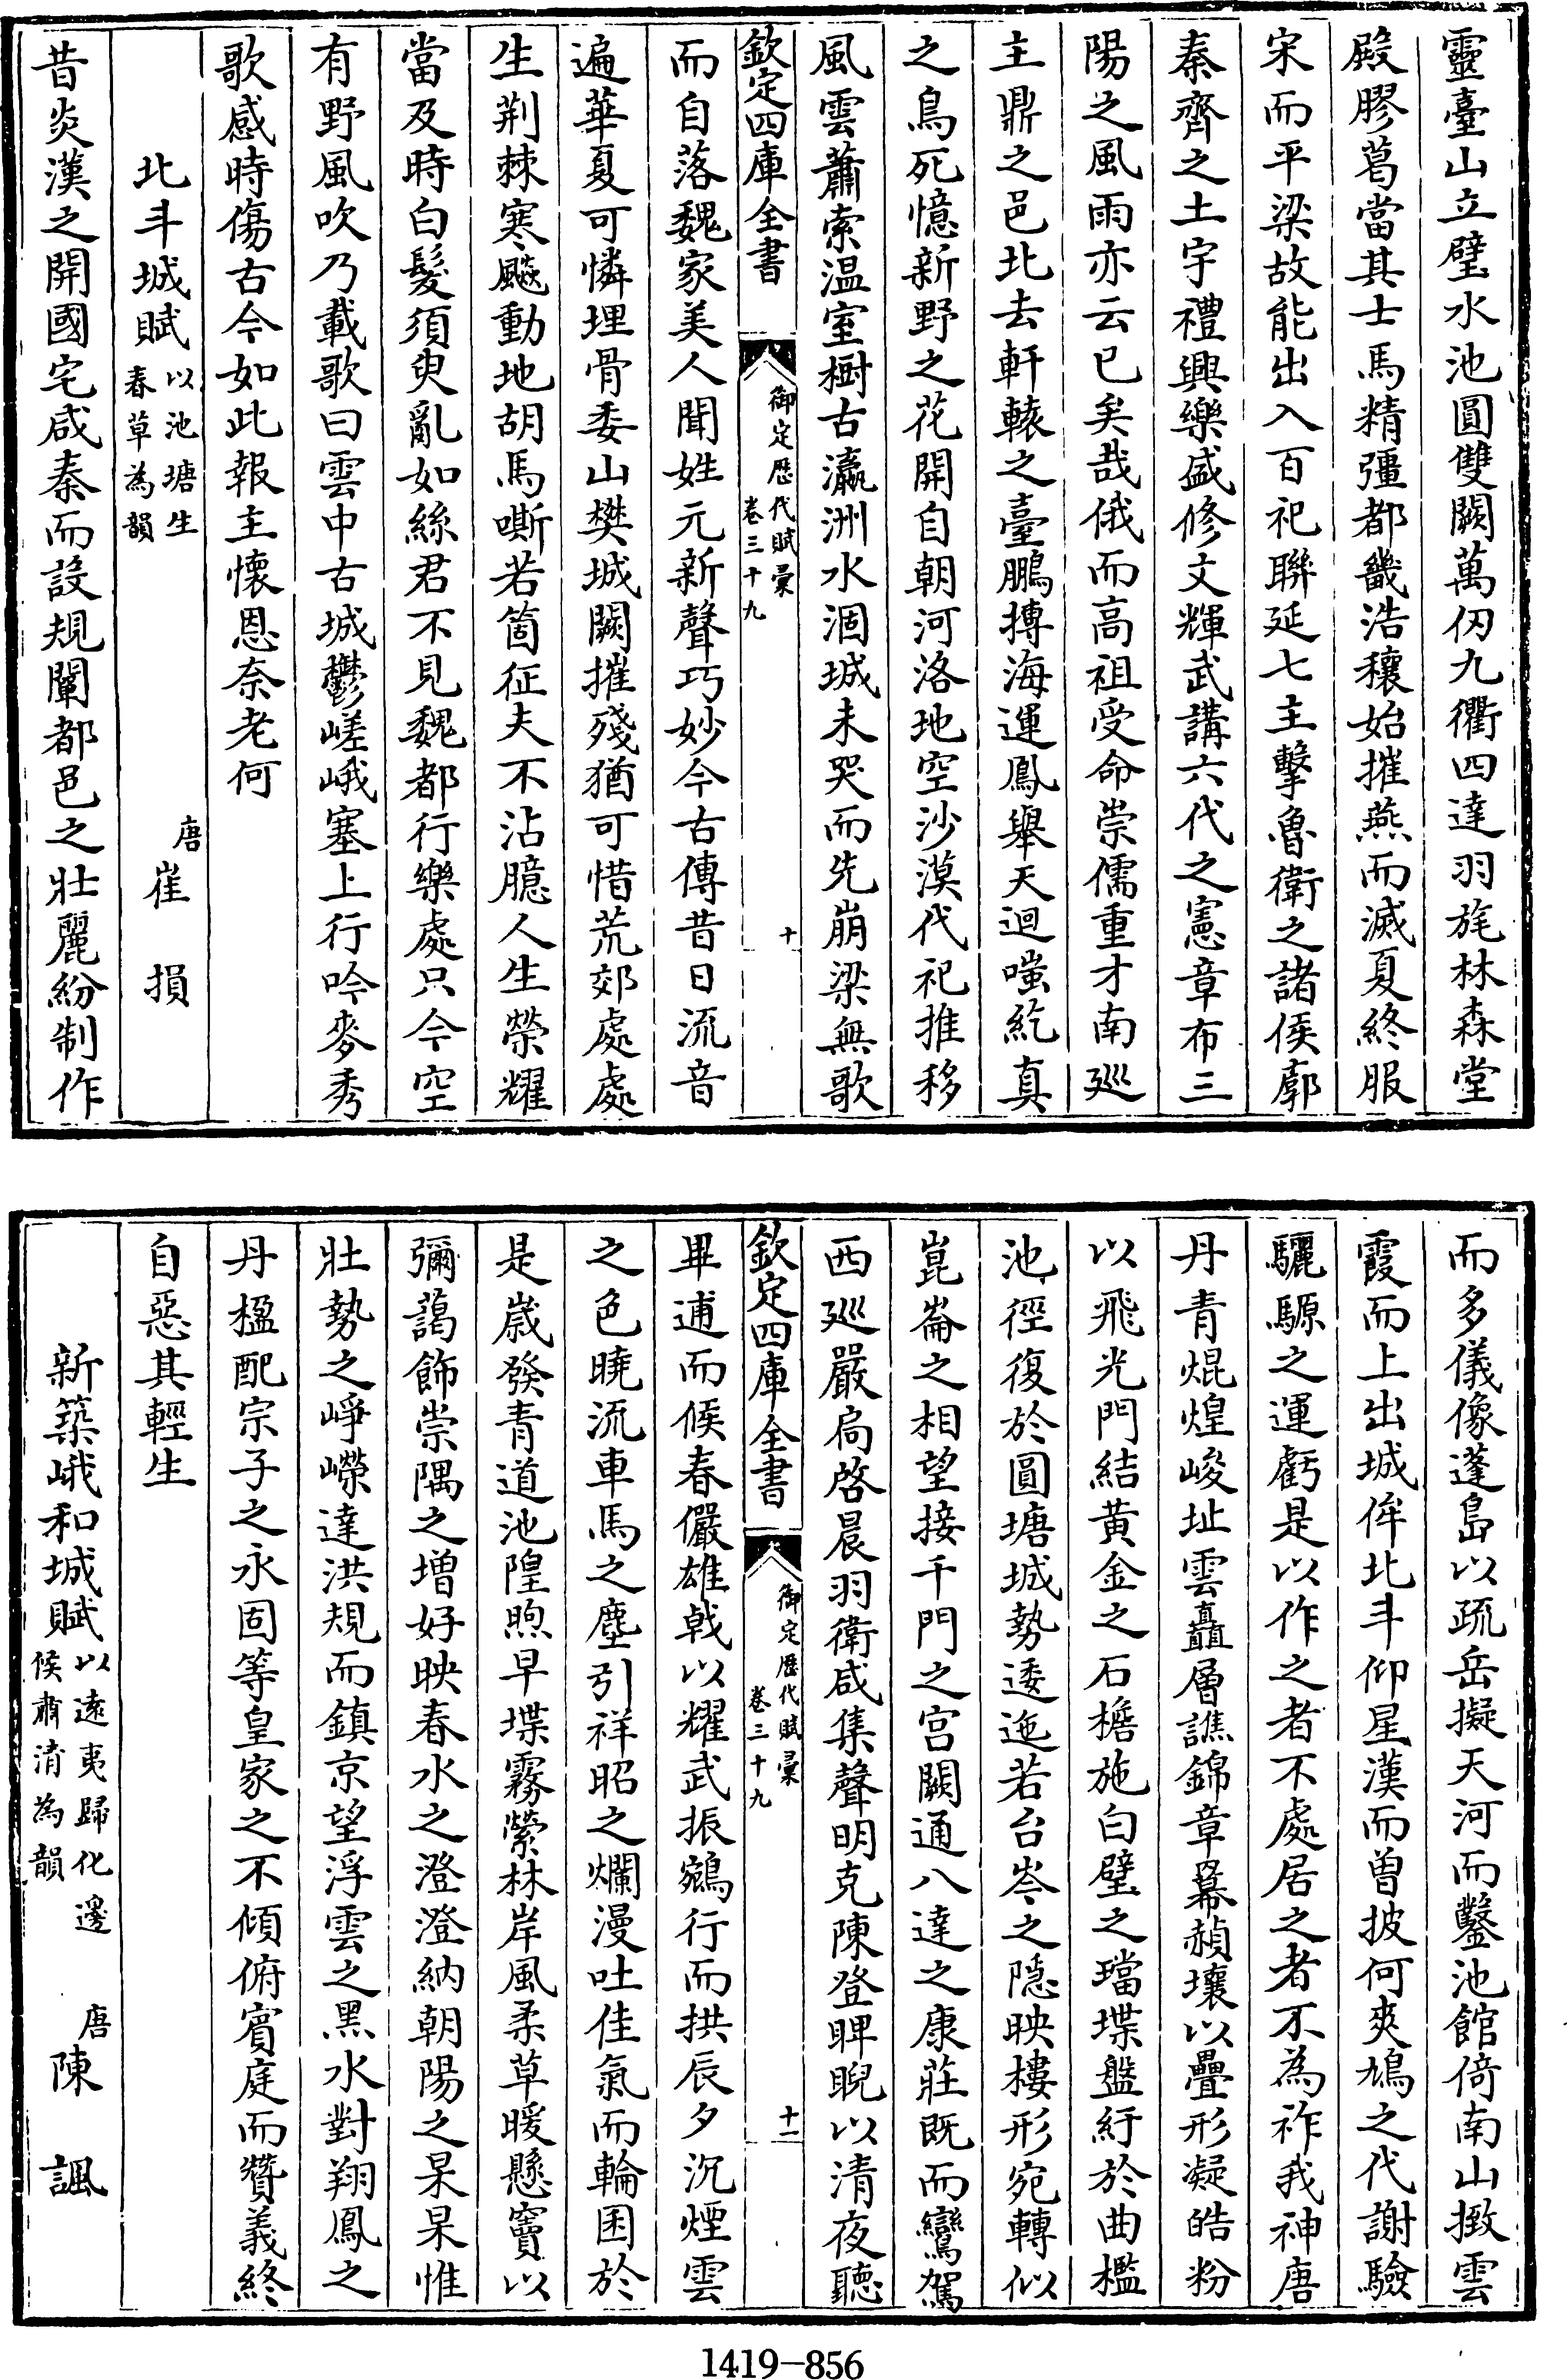 靈臺山立璧水池圓雙闕萬仞九衢四達羽旄林森堂
殿膠葛當其士馬精彊都畿浩穰始摧燕而滅夏終服
宋而平梁故能出入百祀聯延七主擊魯衛之諸侯廓
秦齊之土宇禮興樂盛修文輝武講六代之憲章布三
陽之風雨亦云已矣哉俄而高祖受命崇儒重才南巡
主鼎之邑北去軒轅之臺鵬摶海運鳳舉天迴嗤紇真
之鳥死憶新野之花開自朝河洛地空沙漠代祀推移
風雲蕭索温室樹古瀛洲水涸城未哭而先崩梁無歌
欽定四庫全書
御定歴代賦彙
卷三十九
十
而自落魏家美人聞姓元新聲巧妙今古傳昔日流音
遍華夏可憐埋骨委山樊城闕摧殘猶可惜荒郊處處
生荆棘寒飈動地胡馬嘶若箇征夫不沾臆人生榮耀
當及時白髮須臾亂如絲君不見魏都行樂處只今空
有野風吹乃載歌曰雲中古城鬱嵯峨塞上行吟麥秀
歌感時傷古今如此報主懷恩奈老何
北斗城賦
以池塘生
春草為韻
唐崔損
昔炎漢之開國宅咸秦而設規闡都邑之壯麗紛制作
而多儀像蓬島以疏岳擬天河而鑿池館倚南山撥雲
霞而上出城侔北斗仰星漢而曾披何爽鳩之代謝驗
驪騵之運虧是以作之者不處居之者不為祚我神唐
丹青焜煌峻址雲矗層譙錦章幕赬壤以疊形凝皓粉
以飛光門結黃金之石檐施白璧之璫堞盤紆於曲檻
池徑復於圓塘城勢逶迤若台岑之隱映樓形宛轉似
崑崙之相望接千門之宫闕通八達之康莊既而鸞駕
西巡嚴扃啓晨羽衛咸集聲明克陳登睥睨以清夜聽
欽定四庫全書
御定歴代賦彙
卷三十九
十一
畢逋而候春儼雄戟以耀武振鵷行而拱辰夕沉煙雲
之色曉流車馬之塵引祥昭之爛漫吐佳氣而輪囷於
是歲發青道池隍煦早堞霧縈林岸風柔草暖懸竇以
彌藹飾崇隅之增好映春水之澄澄納朝陽之杲杲惟
壯勢之崢嶸達洪規而鎮京望浮雲之黑水對翔鳳之
丹楹配宗子之永固等皇家之不傾俯賓庭而贊義終
自惡其輕生
新築峨和城賦
以遠夷歸化邊
候肅清為韻
唐陳諷
1419-856